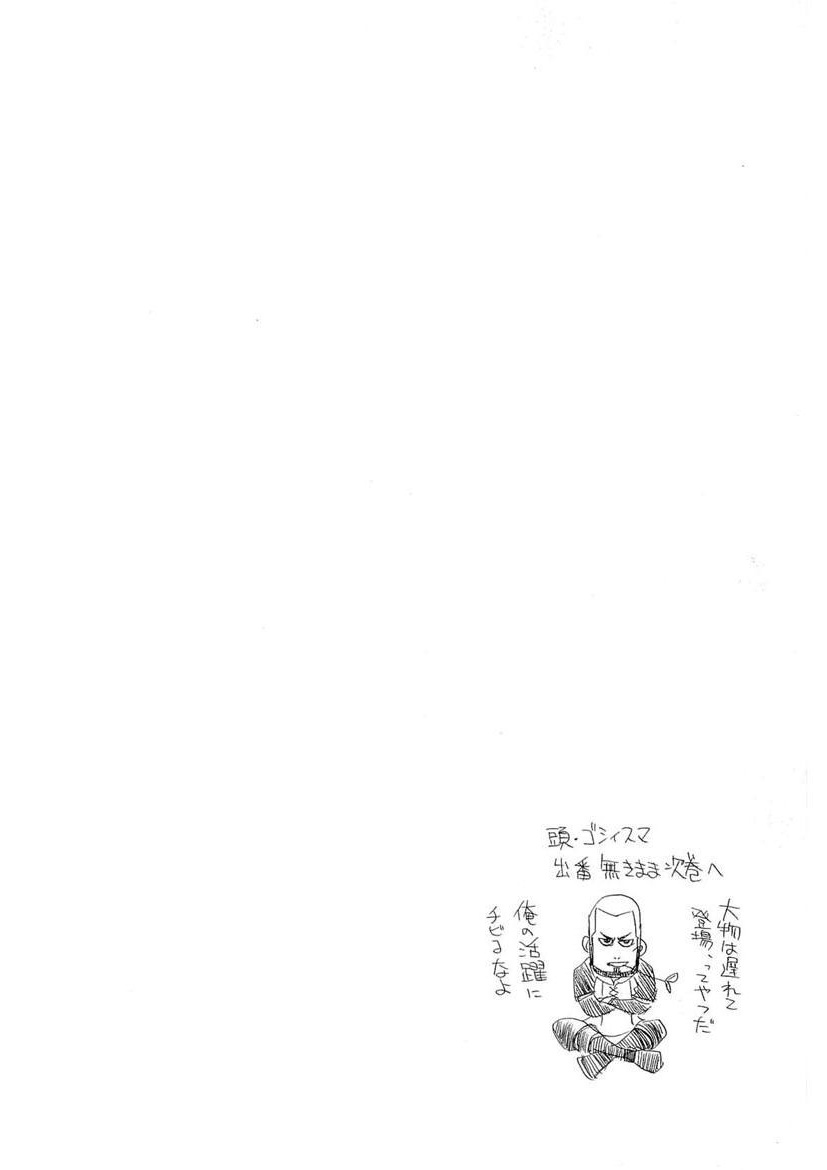 頭・ゴシィスマ
出番無きまま次巻へ
大物は遅れて
登場、ってやつだ
俺の活躍に
チビるなよ